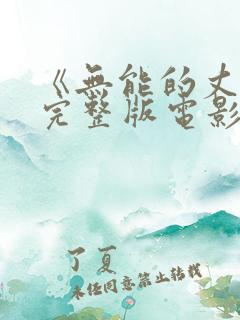 《无能的丈
完整版电影
了夏
未经同意禁止转载